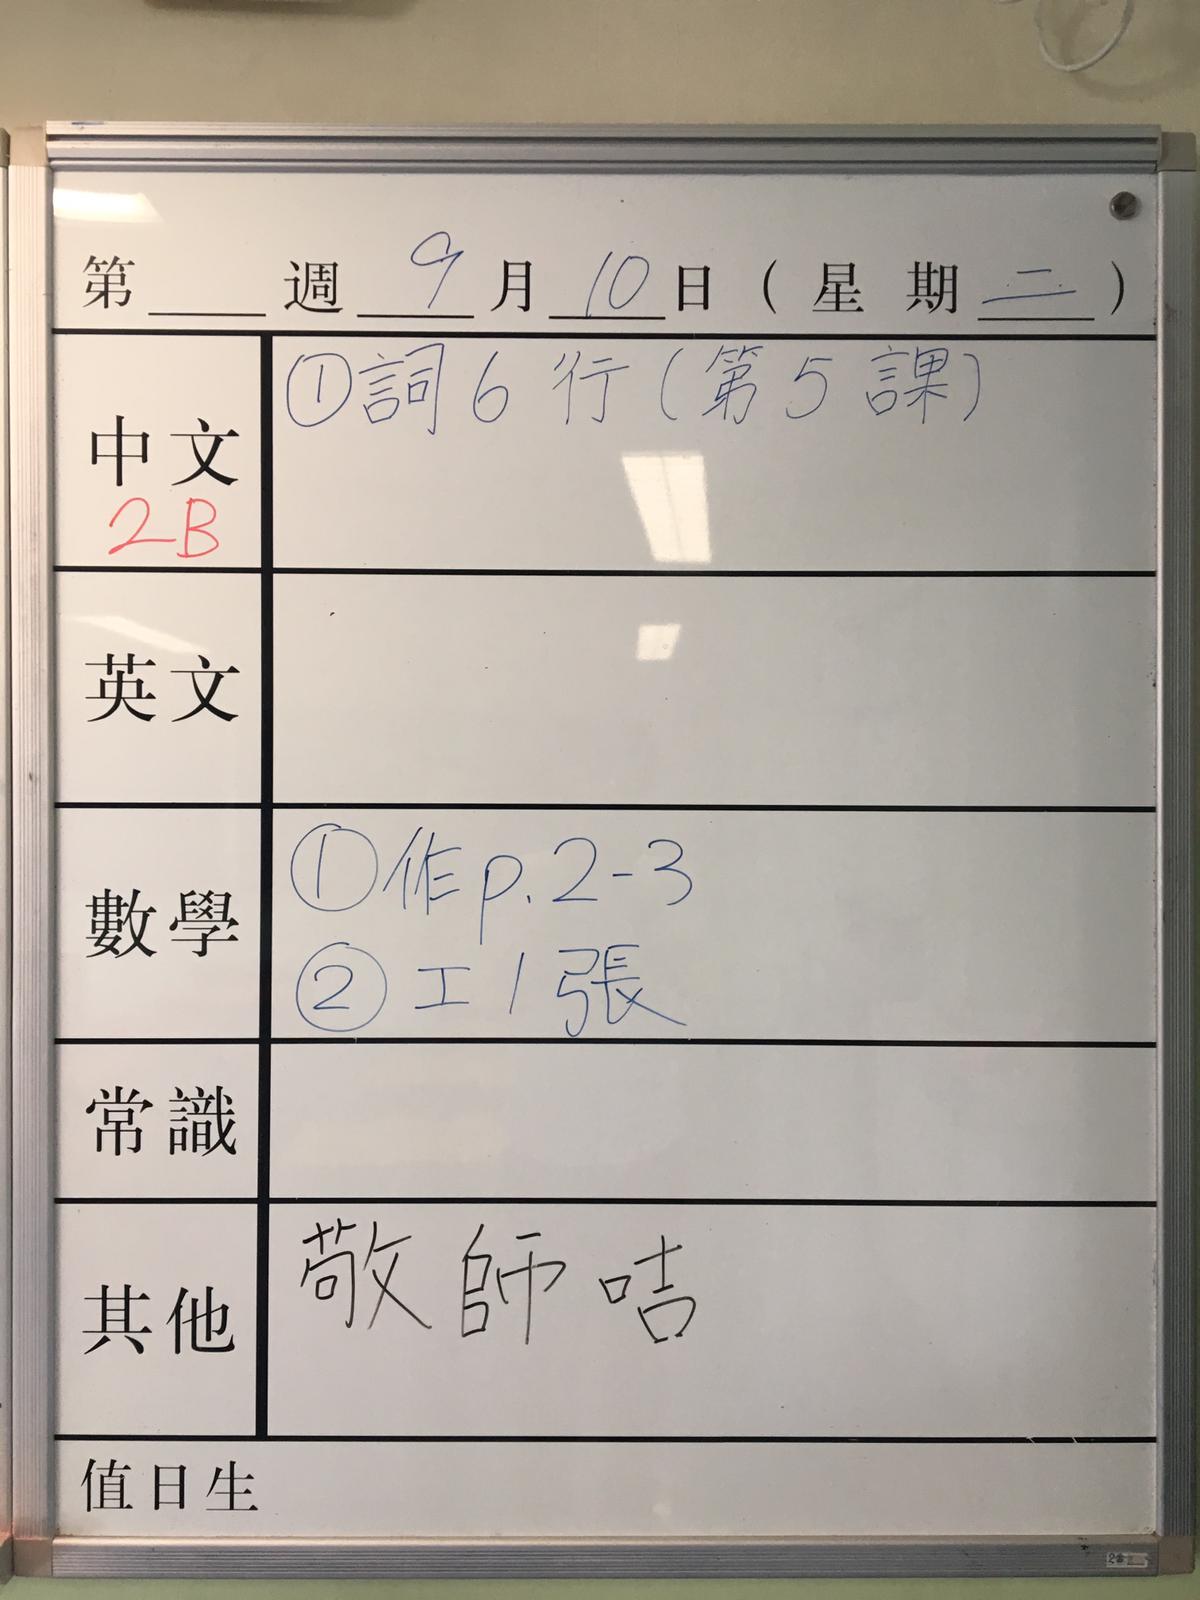 第____週 9 月 10 日（星期二）
中文
2B
①詞6行(第5課)
英文
數學
①作p.2-3
②工1張
常識
其他
敬師咭
值日生